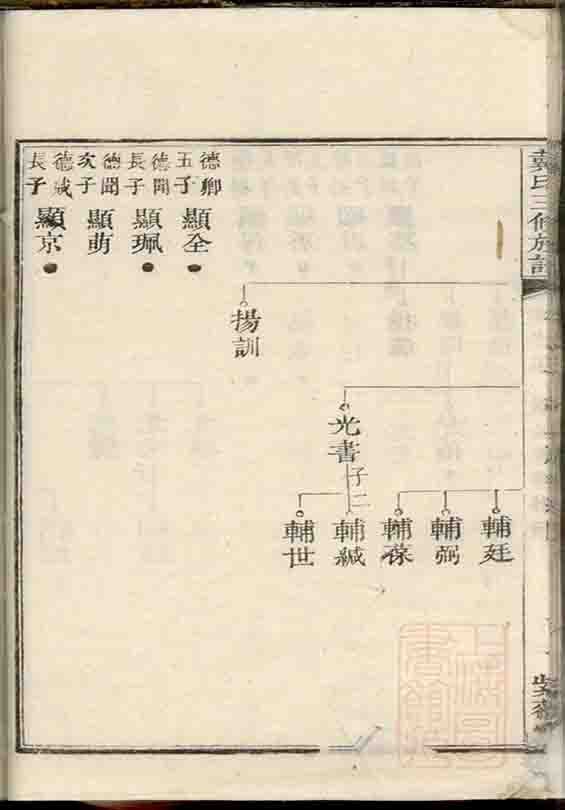 戴氏三修族譜
德卿
五子
顯全
德聞
長子
顯珮
德聞
次子
顯萌
德斌
長子
顯京
揚訓
光書
子二
輔廷
輔弼
輔葆
輔緘
輔世
上海圖書館藏